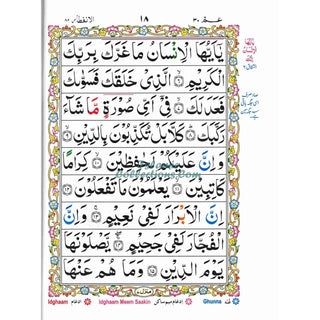 الانفطار ٨٢
١٨
عـمّ ٣٠
يٰۤاَيُّهَا الْاِنْسَانُ مَا غَرَّكَ بِرَبِّكَ
الْكَرِيْمِ ۙ﴿۶﴾ الَّذِيْ خَلَقَكَ فَسَوّٰىكَ
فَعَدَلَكَ ۙ﴿۷﴾ فِيْۤ اَيِّ صُوْرَةٍ مَّا شَآءَ
رَكَّبَكَ ؕ﴿۸﴾ كَلَّا بَلْ تُكَذِّبُوْنَ بِالدِّيْنِ ۙ﴿۹﴾
وَاِنَّ عَلَيْكُمْ لَحٰفِظِيْنَ ۙ﴿۱۰﴾ كِرَامًا
كَاتِبِيْنَ ۙ﴿۱۱﴾ يَعْلَمُوْنَ مَا تَفْعَلُوْنَ ﴿۱۲﴾
اِنَّ الْاَبْرَارَ لَفِيْ نَعِيْمٍ ۚ﴿۱۳﴾ وَاِنَّ
الْفُجَّارَ لَفِيْ جَحِيْمٍ ۚۖ﴿۱۴﴾ يَّصْلَوْنَهَا
يَوْمَ الدِّيْنِ ﴿۱۵﴾ وَمَا هُمْ عَنْهَا
منزل ٧
Idghaam ادغام
Idghaam Meem Saakin ادغام میم ساکن
Ghunna غنہ